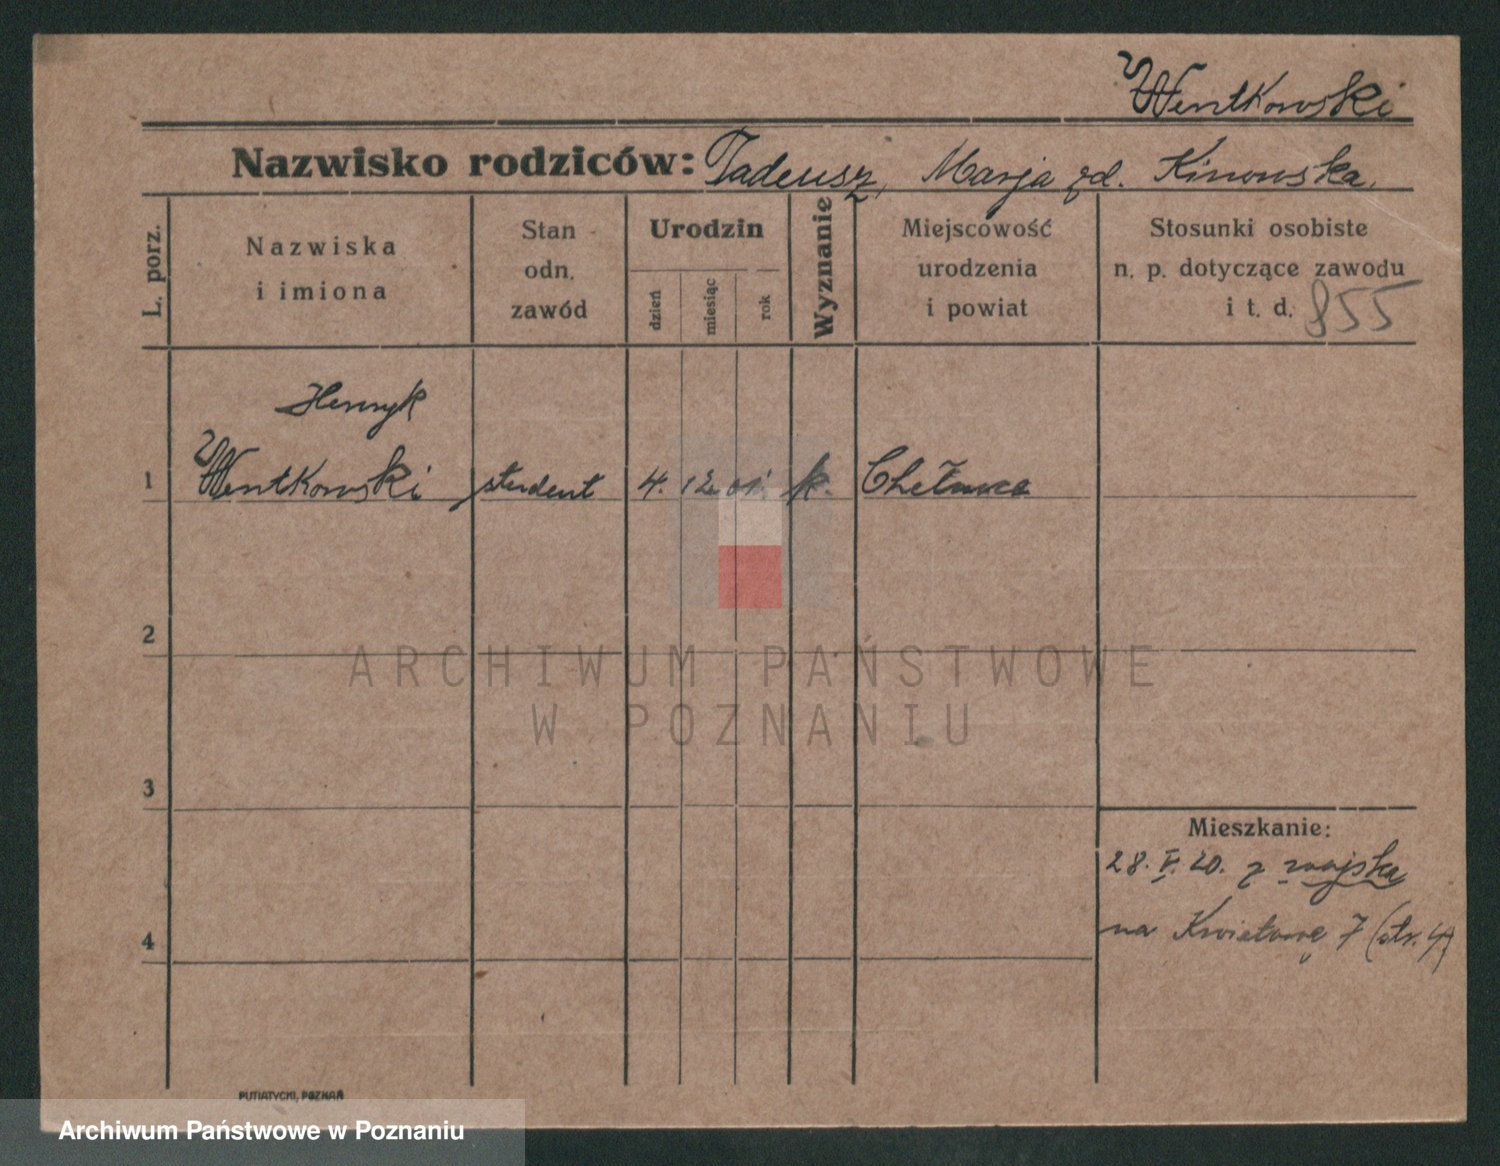 Wentkowski
Nazwisko rodziców: Tadeusz, Marja zd. Kinowska.
L. porz.
Nazwiska
i imiona
Stan
odn.
zawód
Urodzin
dzień
miesiąc
rok
Wyznanie
Miejscowość
urodzenia
i powiat
Stosunki osobiste
n. p. dotyczące zawodu
i t. d. 855
Henryk
1 Wentkowski student 4. 12. 01. k.
2
3
4
Mieszkanie:
28. V. 20. z wojska
na Kwiatowę 7 (str. 4)
ARCHIWUM PAŃSTWOWE
W POZNANIU
PUTIATYCKI, POZNAŃ
Archiwum Państwowe w Poznaniu